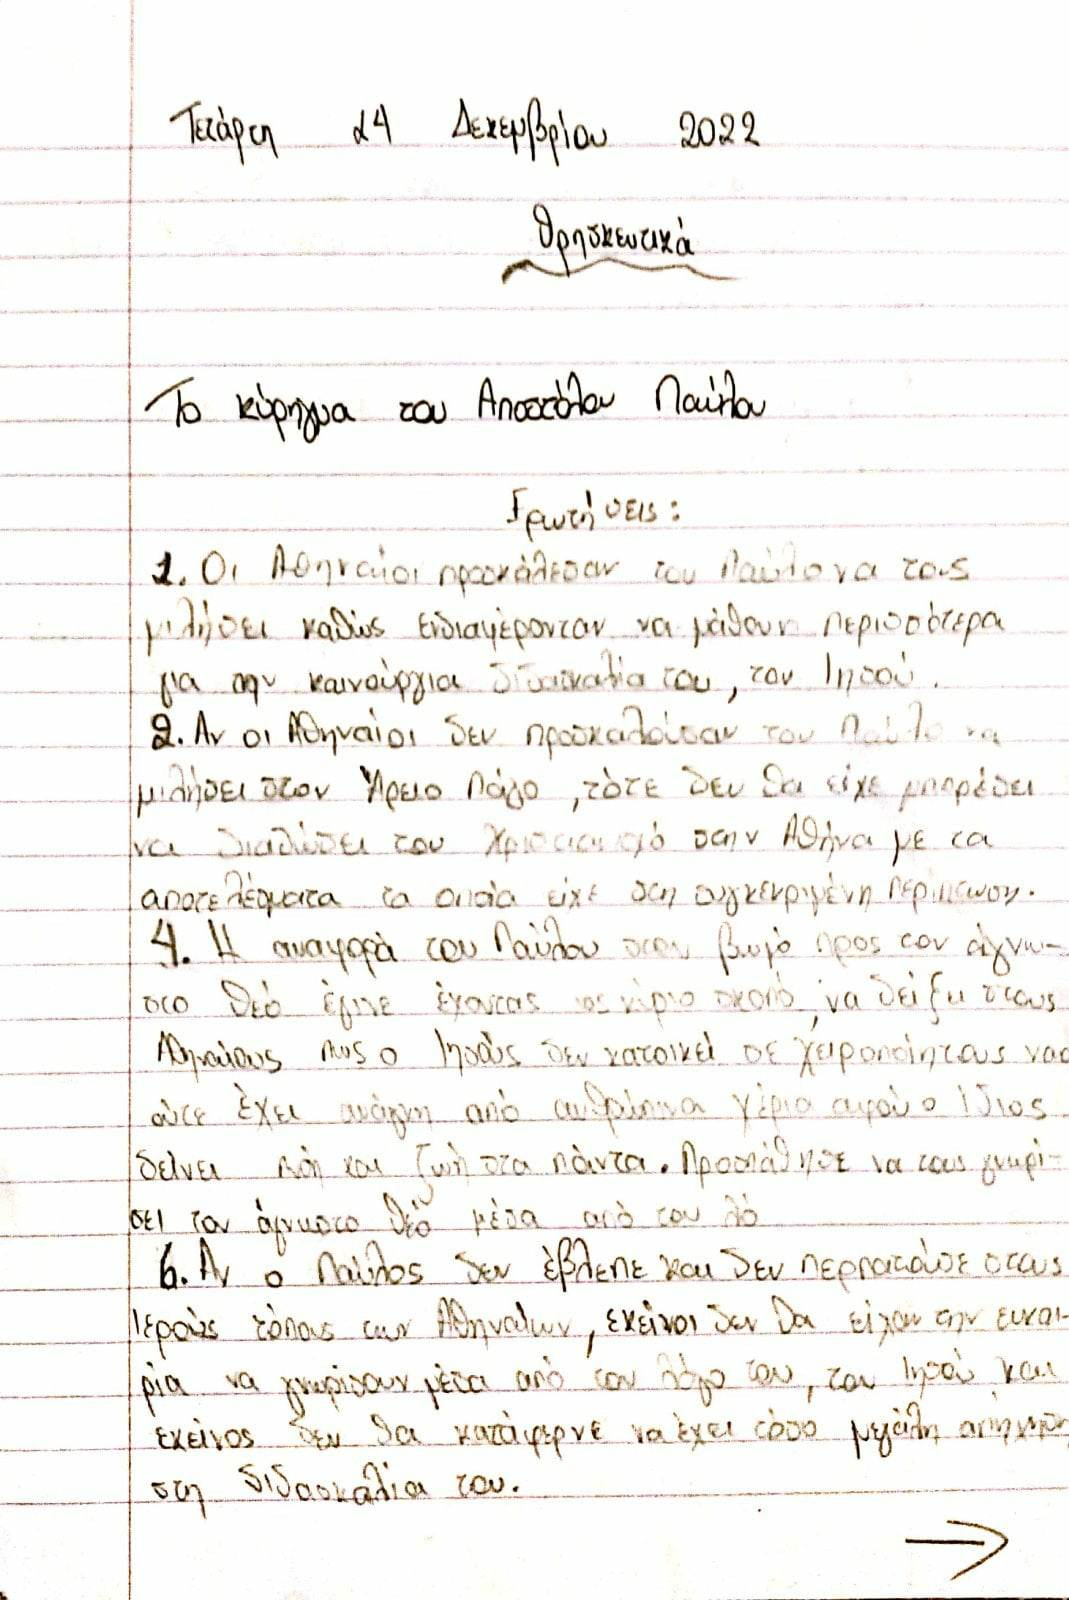 Τετάρτη 14 Δεκεμβρίου 2022
Θρησκευτικά
Το κύρηγμα του Αποστόλου Παύλου
Ερωτήσεις:
1. Οι Αθηναίοι προσκάλεσαν τον Παύλο να τους
μιλήσει καθώς ενδιαφέρονταν να μάθουν περισσότερα
για την καινούργια διδασκαλία του, τον Ιησού.
2. Αν οι Αθηναίοι δεν προσκαλούσαν τον Παύλο να
μιλήσει στον Άρειο Πάγο, τότε δεν θα είχε μπορέσει
να διαδώσει τον Χριστιανισμό στην Αθήνα με τα
αποτελέσματα τα οποία είχε στη συγκεκριμένη περίπτωση.
4. Η αναφορά του Παύλου στον βωμό προς τον άγνω-
στο Θεό έγινε έχοντας ως κύριο σκοπό, να δείξει στους
Αθηναίους πως ο Ιησούς δεν κατοικεί σε χειροποίητους ναο
ούτε έχει ανάγκη από ανθρώπινα χέρια αφού ο Ίδιος
δείνει πνοή και ζωή στα πάντα. Προσπάθησε να τους γνωρί-
σει τον άγνωστο Θεό μέσα από τον λό
6. Αν ο Παύλος δεν έβλεπε και δεν περπατούσε στους
Ιερούς τόπους των Αθηναίων, εκείνοι δεν θα είχαν την ευκαι-
ρία να γνωρίσουν μέσα από τον λόγο του, τον Ιησού και
εκείνος δεν θα κατάφερνε να έχει τόσο μεγάλη απήχηση
στη διδασκαλία του.